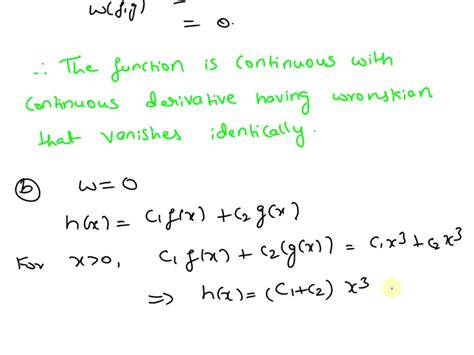 W(f,g) =
= 0.
∴ The function is continuous with
continuous derivative having wronskian
that vanishes identically.
(b) w=0
h(x) = c₁f(x) + c₂ g(x)
For x>0, c₁ f(x) + c₂(g(x)) = c₁x³ + c₂ x³
⇒ h(x) = (c₁+c₂) x³